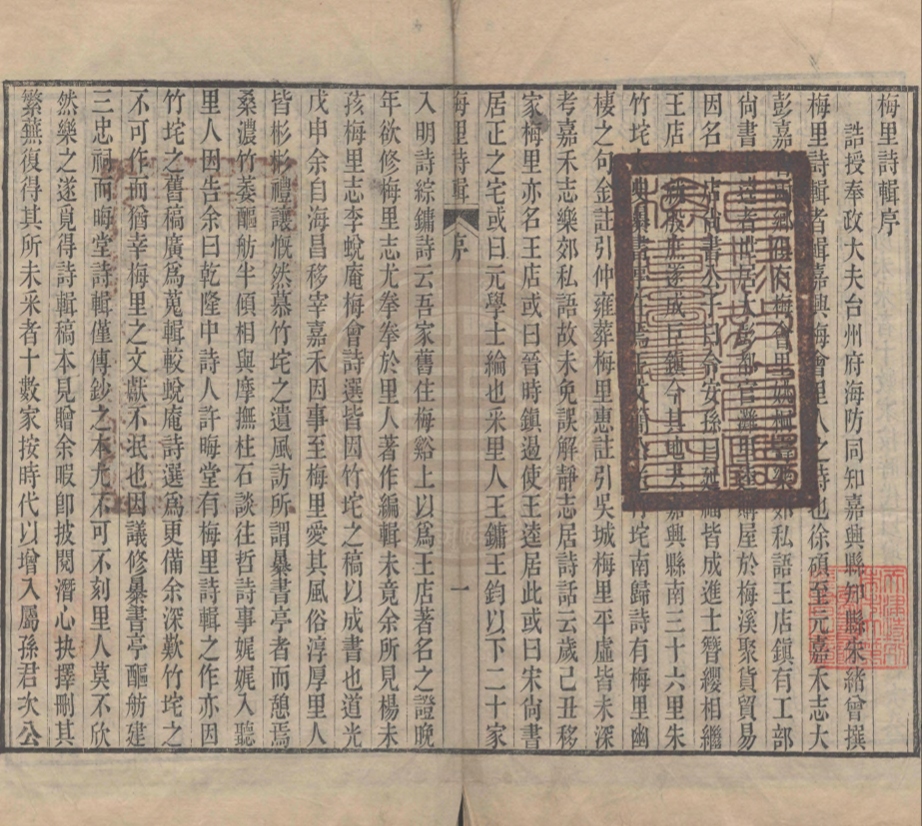 梅里詩輯序
誥授奉政大夫台州府海防同知嘉興縣知縣朱緒曾撰
梅里詩輯者輯嘉興梅會里人之詩也徐碩至元嘉禾志大
彭嘉會兩鄉俱有梅會里姚桐壽樂郊私語王店鎮有工部
尚書 逵者世居大彭都官灘里 購屋於梅溪聚貨貿易
因名 店尚書公子曰令安孫曰延 福皆成進士簪纓相繼
王店 殷庶遂成巨鎮今其地去嘉興縣南三十六里朱
竹垞 曝書亭在焉 竹垞南歸詩有梅里幽
棲之句金註引仲雍葬梅里惠註引吳城梅里平虛皆未深
考嘉禾志樂郊私語故未免誤解靜志居詩話云歲己丑移
家梅里亦名王店或曰晉時鎮遏使王逵居此或曰宋尙書
居正之宅或曰元學士綸也采里人王鏞王鈞以下二十家
入明詩綜鏞詩云吾家舊住梅谿上以爲王店著名之證晚
年欲修梅里志尤拳拳於里人著作編輯未竟余所見楊未
孩梅里志李蛻庵梅會詩選皆因竹垞之稿以成書也道光
戊申余自海昌移宰嘉禾因事至梅里愛其風俗淳厚里人
皆彬彬禮讓慨然慕竹垞之遺風訪所謂曝書亭者而憩焉
桑濃竹萎醧舫半傾相與摩撫柱石談往哲詩事娓娓入聽
里人因告余曰乾隆中詩人許晦堂有梅里詩輯之作亦因
竹垞之舊稿廣爲蒐輯較蛻庵詩選爲更備余深歎竹垞之
不可作而猶幸梅里之文獻不泯也因議修曝書亭醧舫建
三忠祠而晦堂詩輯僅傳鈔之本尤不可不刻里人莫不欣
然樂之遂覓得詩輯稿本見贈余暇卽披閱潛心抉擇刪其
繁蕪復得其所未采者十數家按時代以增入屬孫君次公
梅里詩輯 序 一